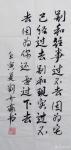 别和往事过不去因为它
已经过去别和现实过不
去因为你还要过下去